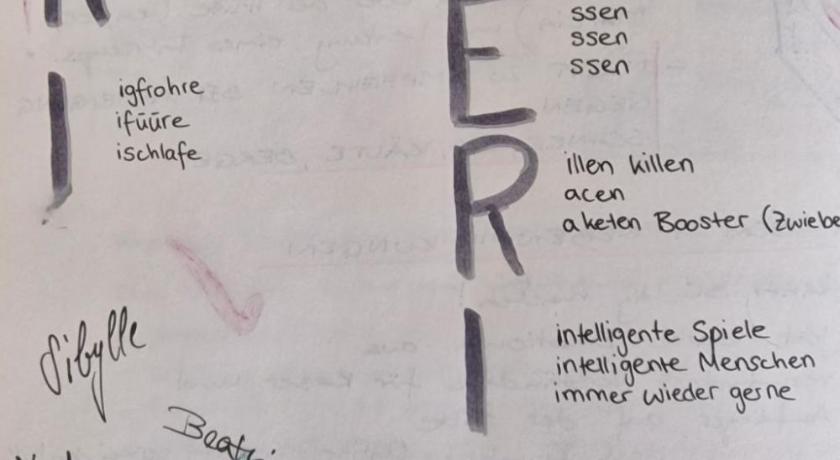 I
igfrohre
ifüüre
ischlafe
Sibylle
E
ssen
ssen
ssen
R
illen killen
acen
aketen Booster (Zwiebe
I
intelligente Spiele
intelligente Menschen
immer wieder gerne